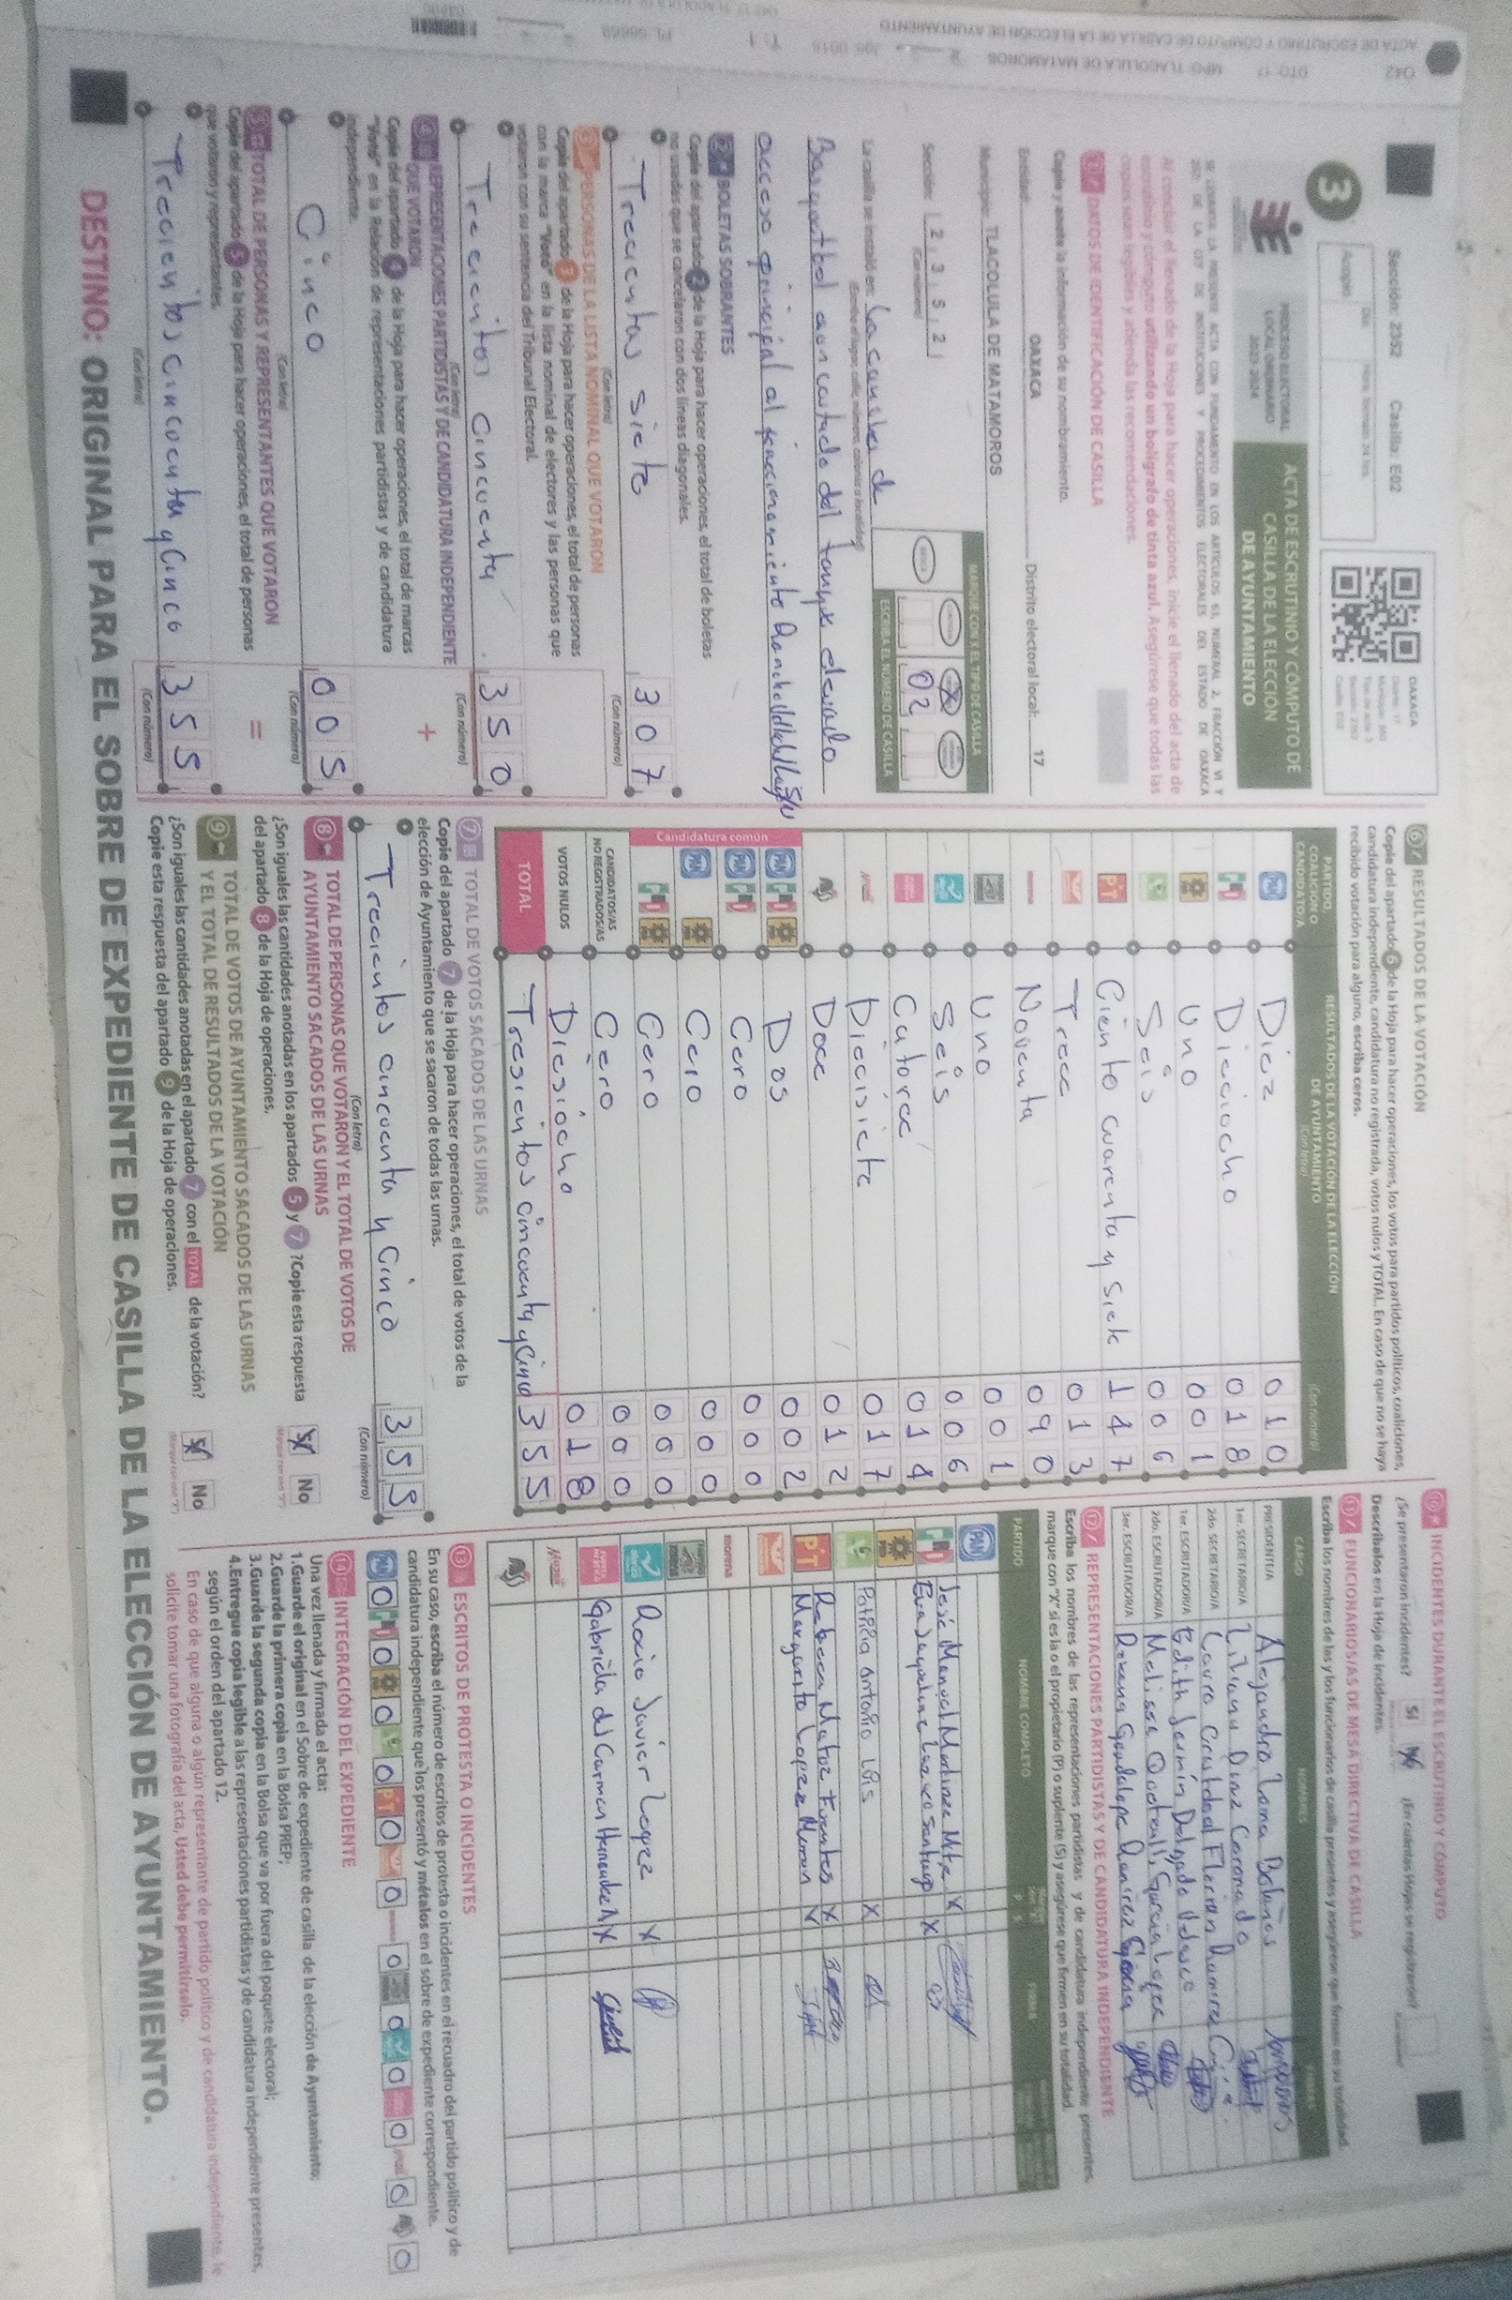 042 DTO. 17 MPO. TLACOLULA DE MATAMOROS
ACTA DE ESCRUTINIO Y CÓMPUTO DE CASILLA DE LA ELECCIÓN DE AYUNTAMIENTO
Sección: 2352 Casilla: E02
OAXACA
3
Acopio
PROCESO ELECTORAL
LOCAL ORDINARIO
2023-2024
ACTA DE ESCRUTINIO Y CÓMPUTO DE
CASILLA DE LA ELECCIÓN
DE AYUNTAMIENTO
Al concluir el llenado de la Hoja para hacer operaciones, inicie el llenado del acta de
escrutinio y cómputo utilizando un bolígrafo de tinta azul. Asegúrese que todas las
copias sean legibles y atienda las recomendaciones.
1 DATOS DE IDENTIFICACIÓN DE CASILLA
Copie y anote la información de su nombramiento.
Entidad: OAXACA Distrito electoral local: 17
Municipio: TLACOLULA DE MATAMOROS
Sección: 2 3 5 2
MARQUE CON X EL TIPO DE CASILLA
ESCRIBA EL NÚMERO DE CASILLA
02
La casilla se instaló en: La cancha de
Basquetbol a un costado del tanque elevado
acceso principal al fraccionamiento
2 BOLETAS SOBRANTES
Copie del apartado 2 de la Hoja para hacer operaciones, el total de boletas
no usadas que se cancelaron con dos líneas diagonales.
Trecientas siete 307
(Con letra) (Con número)
3 PERSONAS DE LA LISTA NOMINAL QUE VOTARON
Copie del apartado 3 de la Hoja para hacer operaciones, el total de personas
con la marca "Votó" en la lista nominal de electores y las personas que
votaron con su sentencia del Tribunal Electoral.
Trecientos cincuenta 350
(Con letra) (Con número)
4 REPRESENTACIONES PARTIDISTAS Y DE CANDIDATURA INDEPENDIENTE
QUE VOTARON
+
Copie del apartado 4 de la Hoja para hacer operaciones, el total de marcas
"Votó" en la Relación de representaciones partidistas y de candidatura
independiente.
Cinco 005
(Con letra) (Con número)
5 TOTAL DE PERSONAS Y REPRESENTANTES QUE VOTARON
=
Copie del apartado 5 de la Hoja para hacer operaciones, el total de personas
que votaron y representantes.
Trecientos cincuenta y Cinco 355
(Con letra) (Con número)
6 RESULTADOS DE LA VOTACIÓN
Copie del apartado 6 de la Hoja para hacer operaciones, los votos para partidos políticos, coaliciones,
candidatura independiente, candidatura no registrada, votos nulos y TOTAL. En caso de que no se haya
recibido votación para alguno, escriba ceros.
PARTIDO,
COALICIÓN O
CANDIDATO/A
RESULTADOS DE LA VOTACIÓN DE LA ELECCIÓN
DE AYUNTAMIENTO
(Con letra) (Con número)
PAN Diez 010
Dieciocho 018
Uno 001
Seis 006
PT Ciento cuarenta y siete 147
Trece 013
Noventa 090
Uno 001
Seis 006
Catorce 014
Diecisiete 017
Doce 012
Candidatura común
PAN Dos 002
PAN Cero 000
PAN Cero 000
Cero 000
CANDIDATOS/AS
NO REGISTRADOS/AS Cero 000
VOTOS NULOS Diesiocho 018
TOTAL Tresientos cincuenta y Cinco 355
7 TOTAL DE VOTOS SACADOS DE LAS URNAS
Copie del apartado 7 de la Hoja para hacer operaciones, el total de votos de la
elección de Ayuntamiento que se sacaron de todas las urnas.
Trecientos cincuenta y Cinco 355
(Con letra) (Con número)
8 TOTAL DE PERSONAS QUE VOTARON Y EL TOTAL DE VOTOS DE
AYUNTAMIENTO SACADOS DE LAS URNAS
¿Son iguales las cantidades anotadas en los apartados 5 y 7 ?Copie esta respuesta
del apartado 8 de la Hoja de operaciones.
Sí No
9 TOTAL DE VOTOS DE AYUNTAMIENTO SACADOS DE LAS URNAS
Y EL TOTAL DE RESULTADOS DE LA VOTACIÓN
¿Son iguales las cantidades anotadas en el apartado 7 con el TOTAL de la votación?
Copie esta respuesta del apartado 9 de la Hoja de operaciones.
Sí No
10 INCIDENTES DURANTE EL ESCRUTINIO Y CÓMPUTO
¿Se presentaron incidentes? Sí No ¿En cuántas Hojas se registraron?
Descríbalos en la Hoja de incidentes.
11 FUNCIONARIOS/AS DE MESA DIRECTIVA DE CASILLA
Escriba los nombres de las y los funcionarios de casilla presentes y asegúrese que firmen en su totalidad.
CARGO NOMBRES FIRMAS
PRESIDENTE/A Alejandra Loma Bolaños
1er. SECRETARIO/A Liliana Diaz Coronado
2do. SECRETARIO/A Laura Cristobal
1er. ESCRUTADOR/A Edith Jazmín Delgado Velasco
2do. ESCRUTADOR/A Melissa García Lopez
3er. ESCRUTADOR/A Roxana Guadalupe Ramirez
12 REPRESENTACIONES PARTIDISTAS Y DE CANDIDATURA INDEPENDIENTE
Escriba los nombres de las representaciones partidistas y de candidatura independiente presentes,
marque con "X" si es la o el propietario (P) o suplente (S) y asegúrese que firmen en su totalidad.
PARTIDO NOMBRE COMPLETO FIRMA
PAN José Manuel Martinez X
Eva Jaqueline Lazco Santiago X
Patricia Antonio Luis X
PT Rebeca Matoz Fuentes X
Margarito Lopez X
morena
Rocio Javier Lopez X
Gabriela del Carmen Hernandez X
13 ESCRITOS DE PROTESTA O INCIDENTES
En su caso, escriba el número de escritos de protesta o incidentes en el recuadro del partido político y de
candidatura independiente que los presentó y métalos en el sobre de expediente correspondiente.
PAN 0 0 0 0 PT 0 0 0 0 0 0 0 0
14 INTEGRACIÓN DEL EXPEDIENTE
Una vez llenada y firmada el acta:
1.Guarde el original en el Sobre de expediente de casilla de la elección de Ayuntamiento;
2.Guarde la primera copia en la Bolsa PREP;
3.Guarde la segunda copia en la Bolsa que va por fuera del paquete electoral;
4.Entregue copia legible a las representaciones partidistas y de candidatura independiente presentes,
según el orden del apartado 12.
En caso de que alguna o algún representante de partido político y de candidatura independiente, le
solicite tomar una fotografía del acta, Usted debe permitírselo.
DESTINO: ORIGINAL PARA EL SOBRE DE EXPEDIENTE DE CASILLA DE LA ELECCIÓN DE AYUNTAMIENTO.